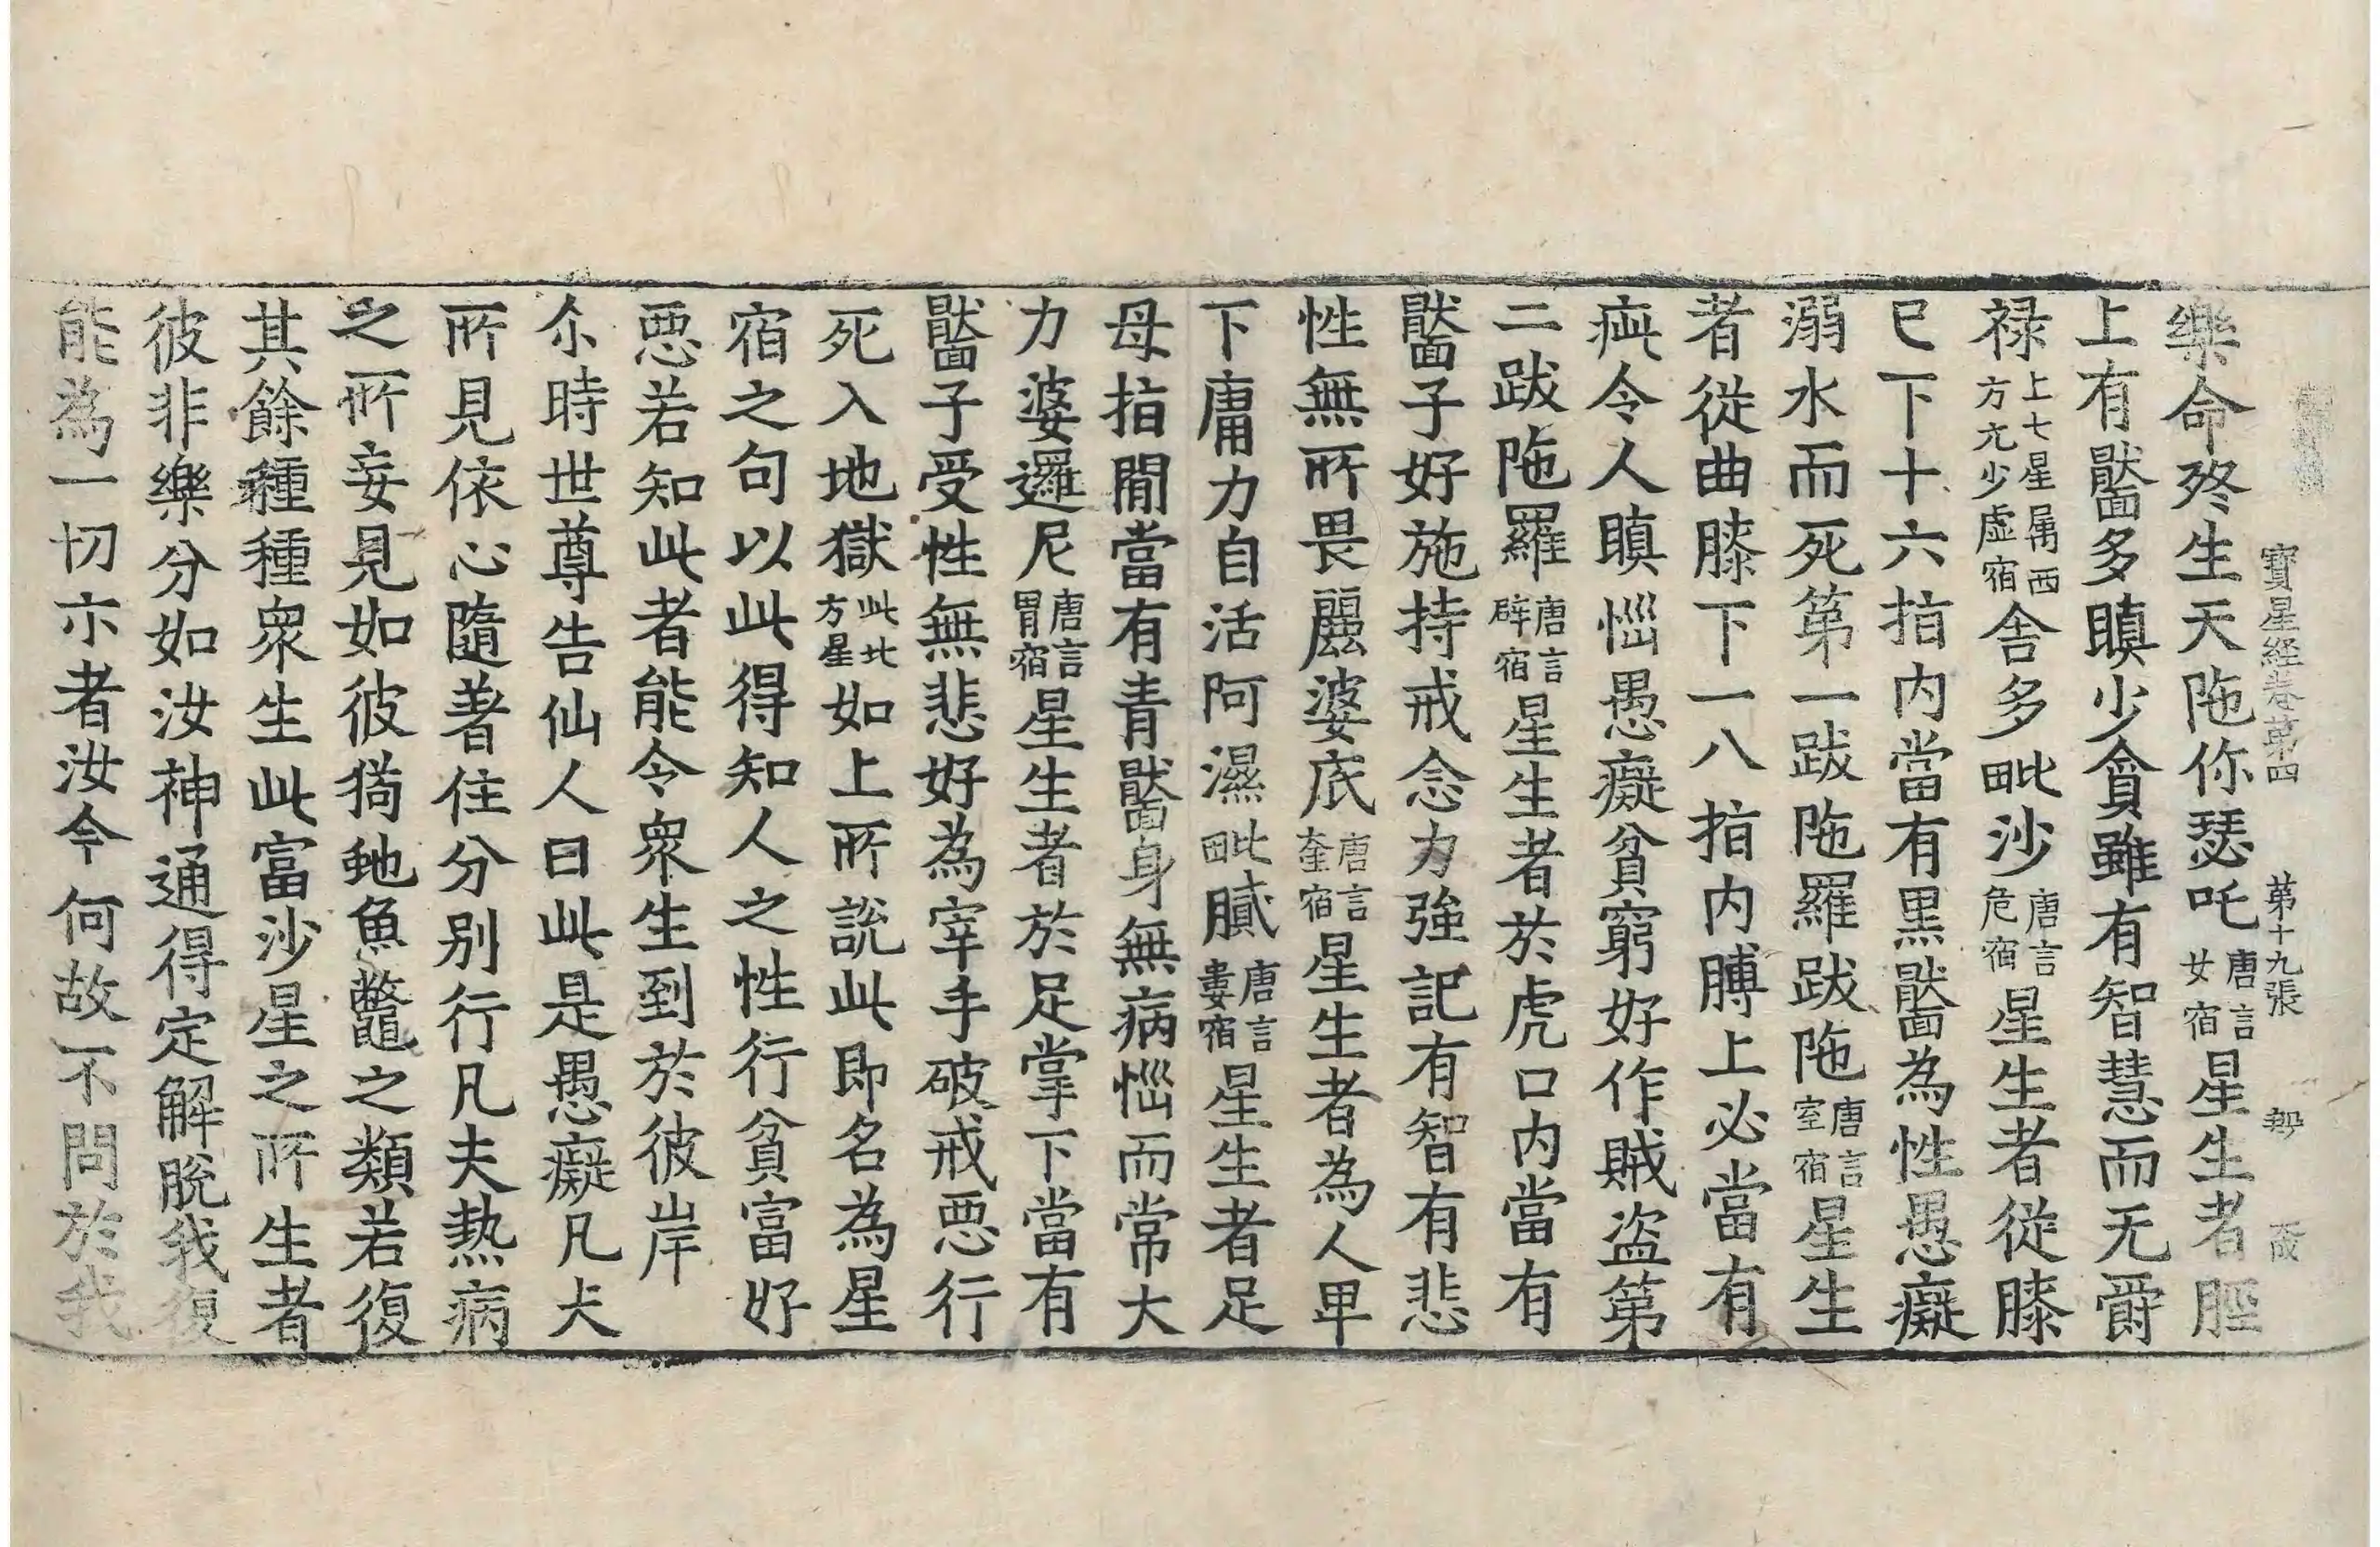 寶星經卷第四 第十九張
樂命終生天陁你瑟吒唐言女宿星生者脛
上有黶多瞋少貪雖有智慧而无爵
禄上七星属西方亢少虛宿舍多毗沙唐言危宿星生者從膝
已下十六指内當有黑黶為性愚癡
溺水而死第一跋陁羅跋陁唐言室宿星生
者從曲膝下一八指内膊上必當有
疵令人瞋惱愚癡貧窮好作賊盗第
二跋陁羅唐言辟宿星生者於虎口内當有
黶子好施持戒念力強記有智有悲
性無所畏麗婆底唐言奎宿星生者為人卑
下庸力自活阿濕毗膩唐言婁宿星生者足
母指間當有青黶身無病惱而常大
力婆邏尼唐言胃宿星生者於足掌下當有
黶子受性無悲好為宰手破戒惡行
死入地獄此北方星如上所說此即名為星
宿之句以此得知人之性行貧富好
惡若知此者能令衆生到於彼岸
尒時世尊告仙人曰此是愚癡凡夫
所見依心隨著住分别行凡夫热病
之所妄見如彼猗虵魚鼈之類若復
其餘種種衆生此富沙星之所生者
彼非樂分如汝神通得定解脫我復
能為一切示者汝今何故不問於我